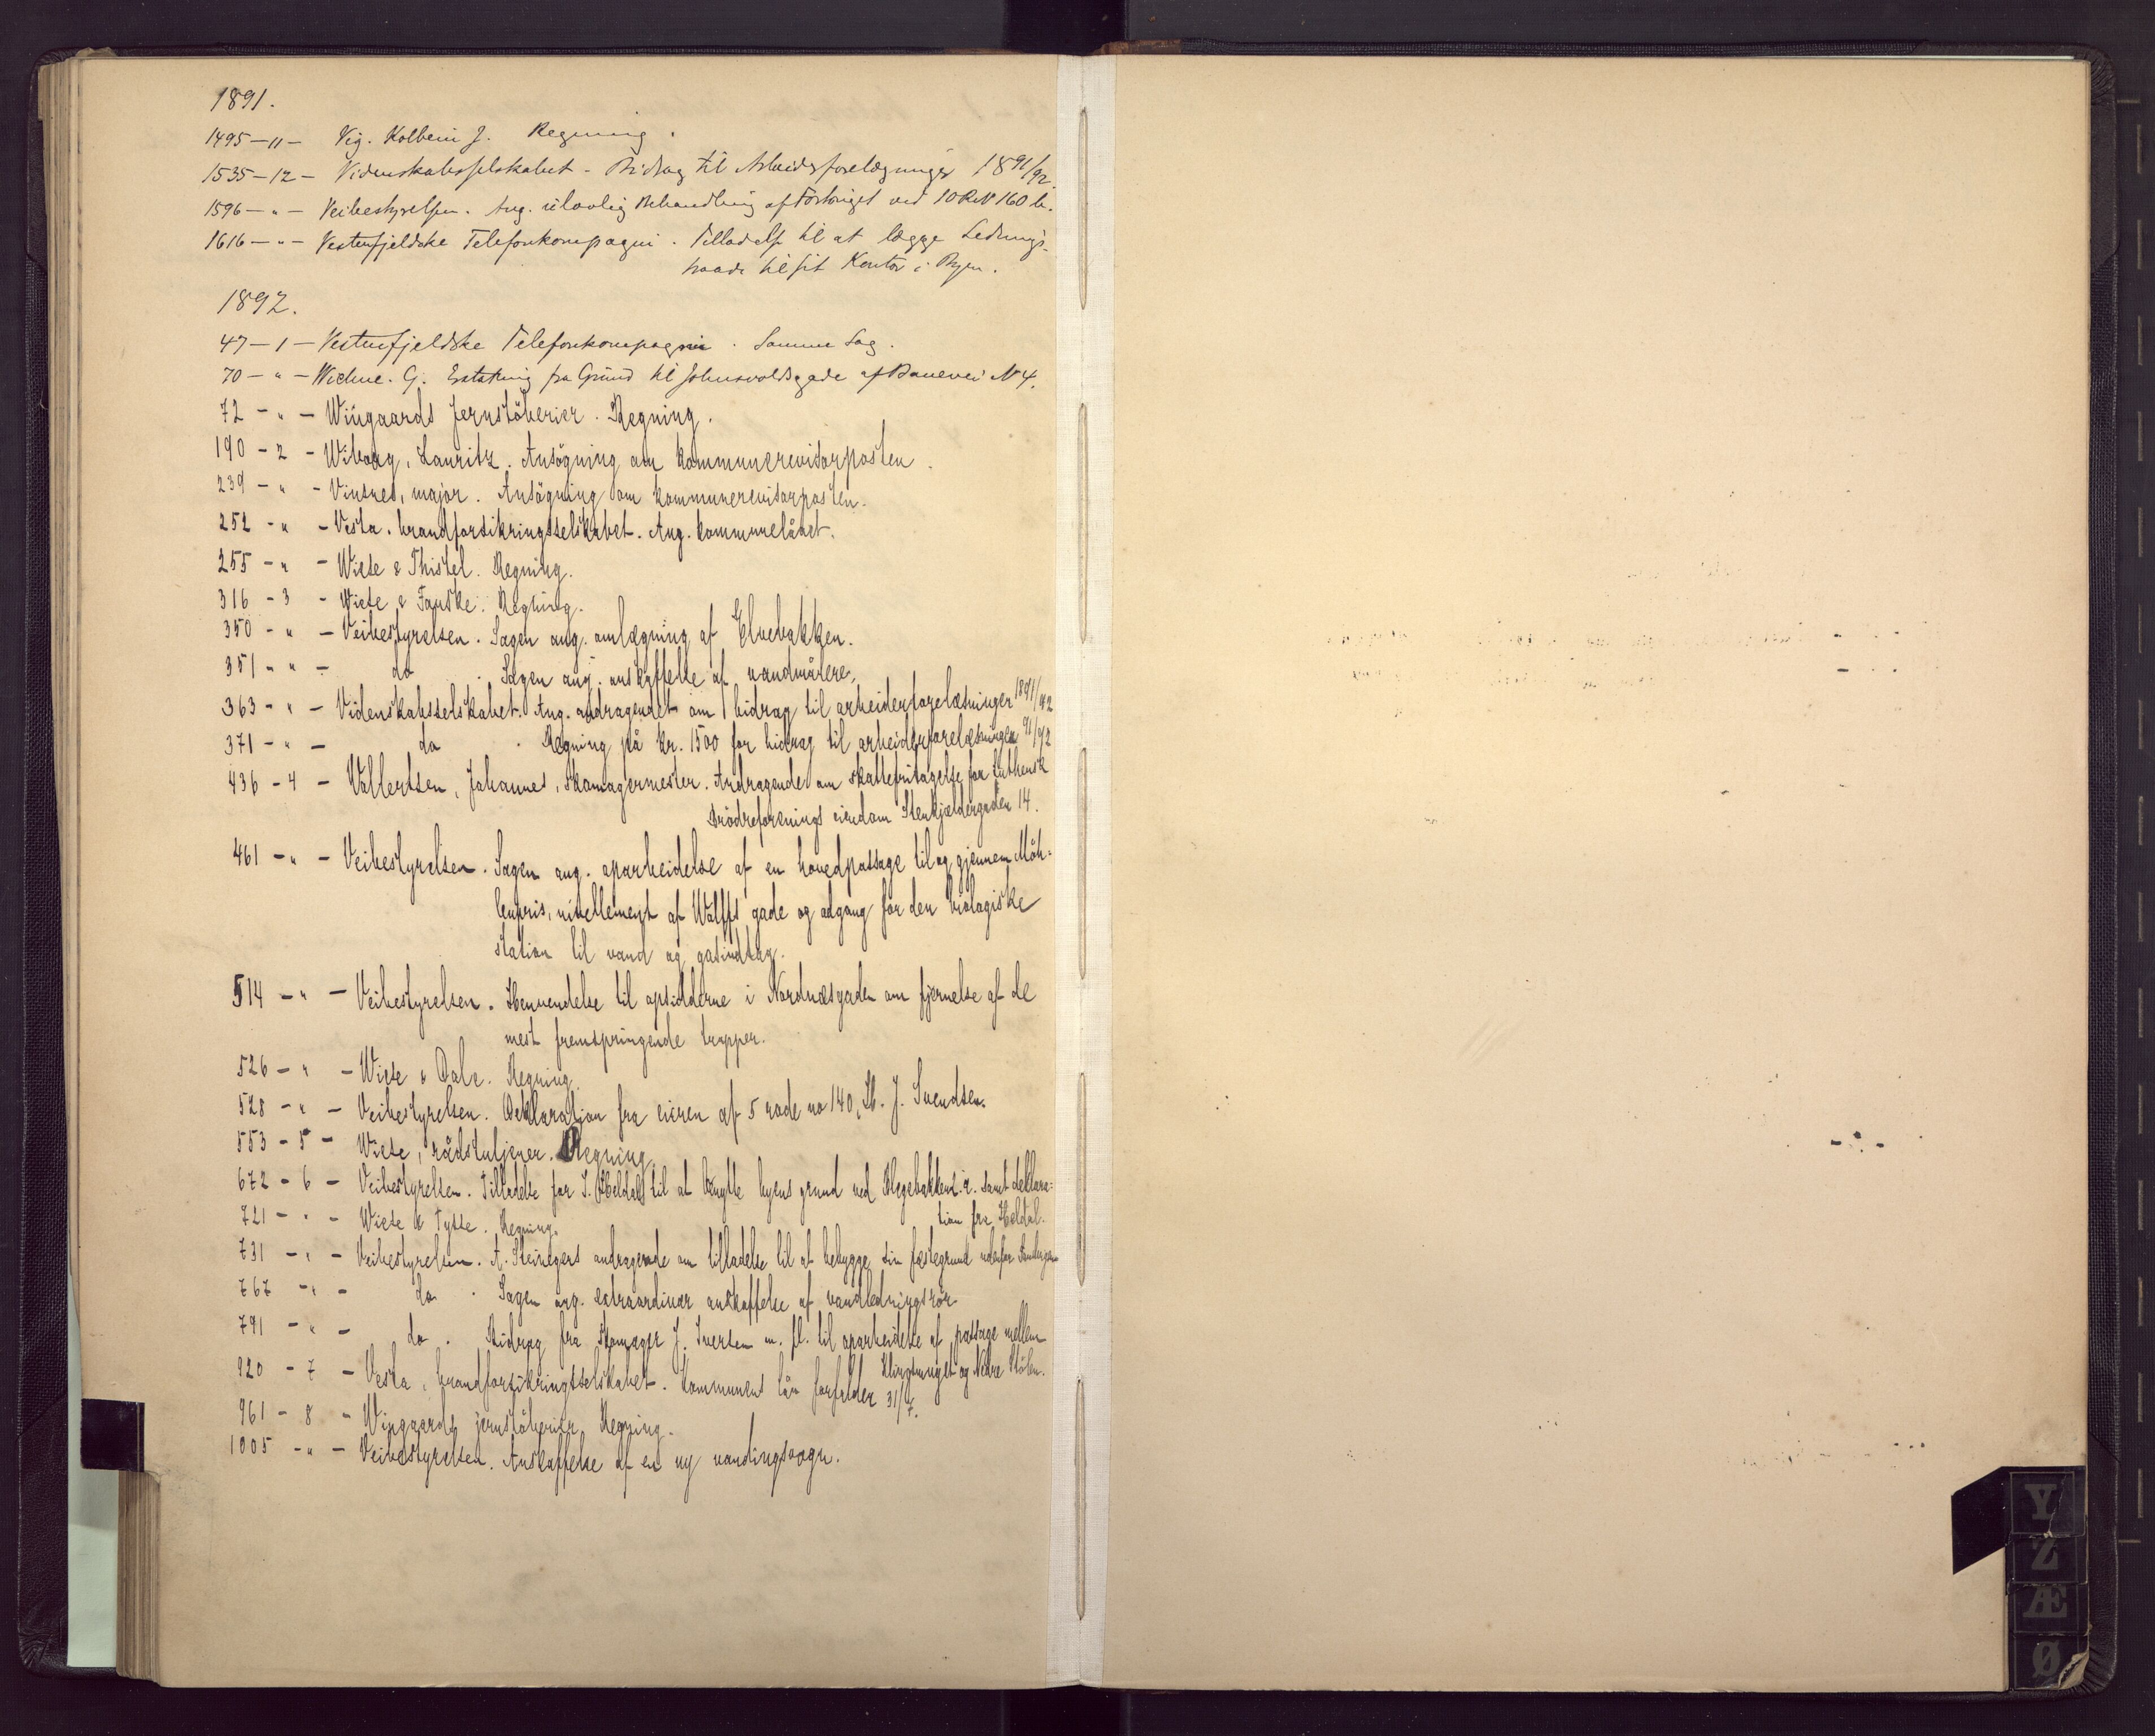 1891.
1495 – 11 – Vig. Kolbein J. Regning.
1535 – 12 – Videnskabsselskabet – Bidrag til Arbeidsforelæsninger 1891/92.
1596 – " – Veibestyrelsen. Ang. ulovlig Behandling af Fortouget ved 10 R N 160 b.
1616 – " – Vestenfjeldske Telefonkompagni. Tilladelse til at lægge Lednings-
traade til sit Kontor i Byen.
1892.
47 – 1 – Vestenfjeldske Telefonkompagni. Samme Sag.
70 – " – Wiehne. G. Erstatning for Grund til Johnsvoldsgade af Banevei N 4.
72 – " – Wingaards Jernstöberier. Regning.
190 – 2 – Wiborg, Lauritz. Ansögning om kommunerevisorposten.
239 – " – Vintnes, major. Ansögning om kommunerevisorposten.
252 – " – Vesta, brandforsikringsselskabet. Ang. kommunelånet.
255 – " – Wiese & Thistel. Regning.
316 – 3 – Wiese & Fauske. Regning.
350 – " – Veibestyrelsen. Sagen ang. omlægning af Elvebakken.
351 – " – do. Sagen ang. anskaffelse af vandmålere.
363 – " – Videnskabsselskabet. Ang. andragendet om bidrag til arbeiderforelæsninger 1891/92
371 – " – do. Regning på kr. 1500 for bidrag til arbeiderforelæsninger 91/92
436 – 4 – Vallertsen, Johannes, skomagermester. Andragende om skattefritagelse for luthersk
Brödreforenings eiendom Stenkjældergaden 14.
461 – " – Veibestyrelsen. Sagen ang. oparbeidelse af en hovedpassage til og gjennem Möh-
lenpris, nivellement af Wolffs gade og adgang for den biologiske
station til vand og gasindtag.
514 – " – Veibestyrelsen. Henvendelse til opsidderne i Nordnæsgaden om fjernelse af de
mest fremspringende trapper.
526 – " – Wiese & Dale. Regning.
528 – " – Veibestyrelsen. Deklaration fra eieren af 5 rode no 140, H. J. Svendsen.
553 – 5 – Wiese, rådstutjener. Regning.
672 – 6 – Veibestyrelsen. Tilladelse for S. Heldal til at benytte byens grund ved samt deklara-
tion fra Heldal.
721 – " – Wiese & Tysse. Regning.
731 – " – Veibestyrelsen. A. Steinegers andragende om tilladelse til at bebygge sin fæstegrund udenfor
767 – " – do. Sagen ang. extraordinær anskaffelse af vandledningsrör
791 – " – do. Bidrag fra skomager J. Iversen m. fl. til oparbeidelse af passage mellem
og Nedre Stölen.
920 – 7 – Vesta, brandforsikringsselskabet. Kommunens lån forfalder 31/7.
961 – 8 – Wingaards jernstöberier. Regning.
1005 – " – Veibestyrelsen. Anskaffelse af en ny vandingsvogn.
Y
Z
Æ
Ø